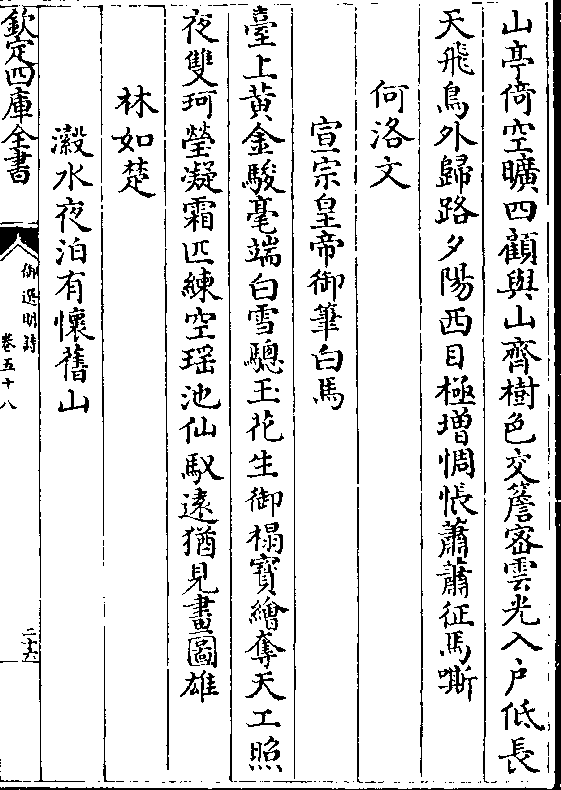 山亭倚空曠四顧與山齊樹色交簷密雲光入户低長
天飛鳥外歸路夕陽西目極增惆悵蕭蕭征馬嘶
何洛文
宣宗皇帝御筆白馬
臺上黄金駿毫端白雪驄玉花生御榻寳繪奪天工照
夜雙珂瑩凝霜匹練空瑶池仙馭遠猶見畫圖雄
林如楚
瀫水夜泊有懷舊山
欽定四庫全書
御選明詩
卷五十八
二十六